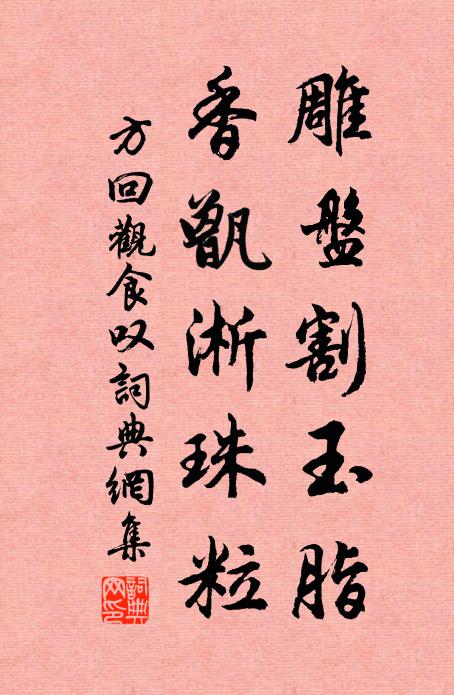 雕盤割玉脂
香甑淅珠粒
方回觀食叹詞典網集
詞典
网印